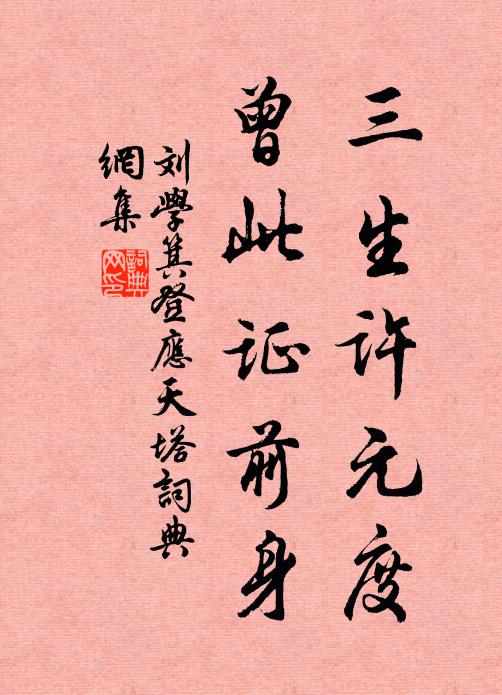 三生许元度
曾此证前身
刘學箕登應天塔詞典
網集
詞典网印